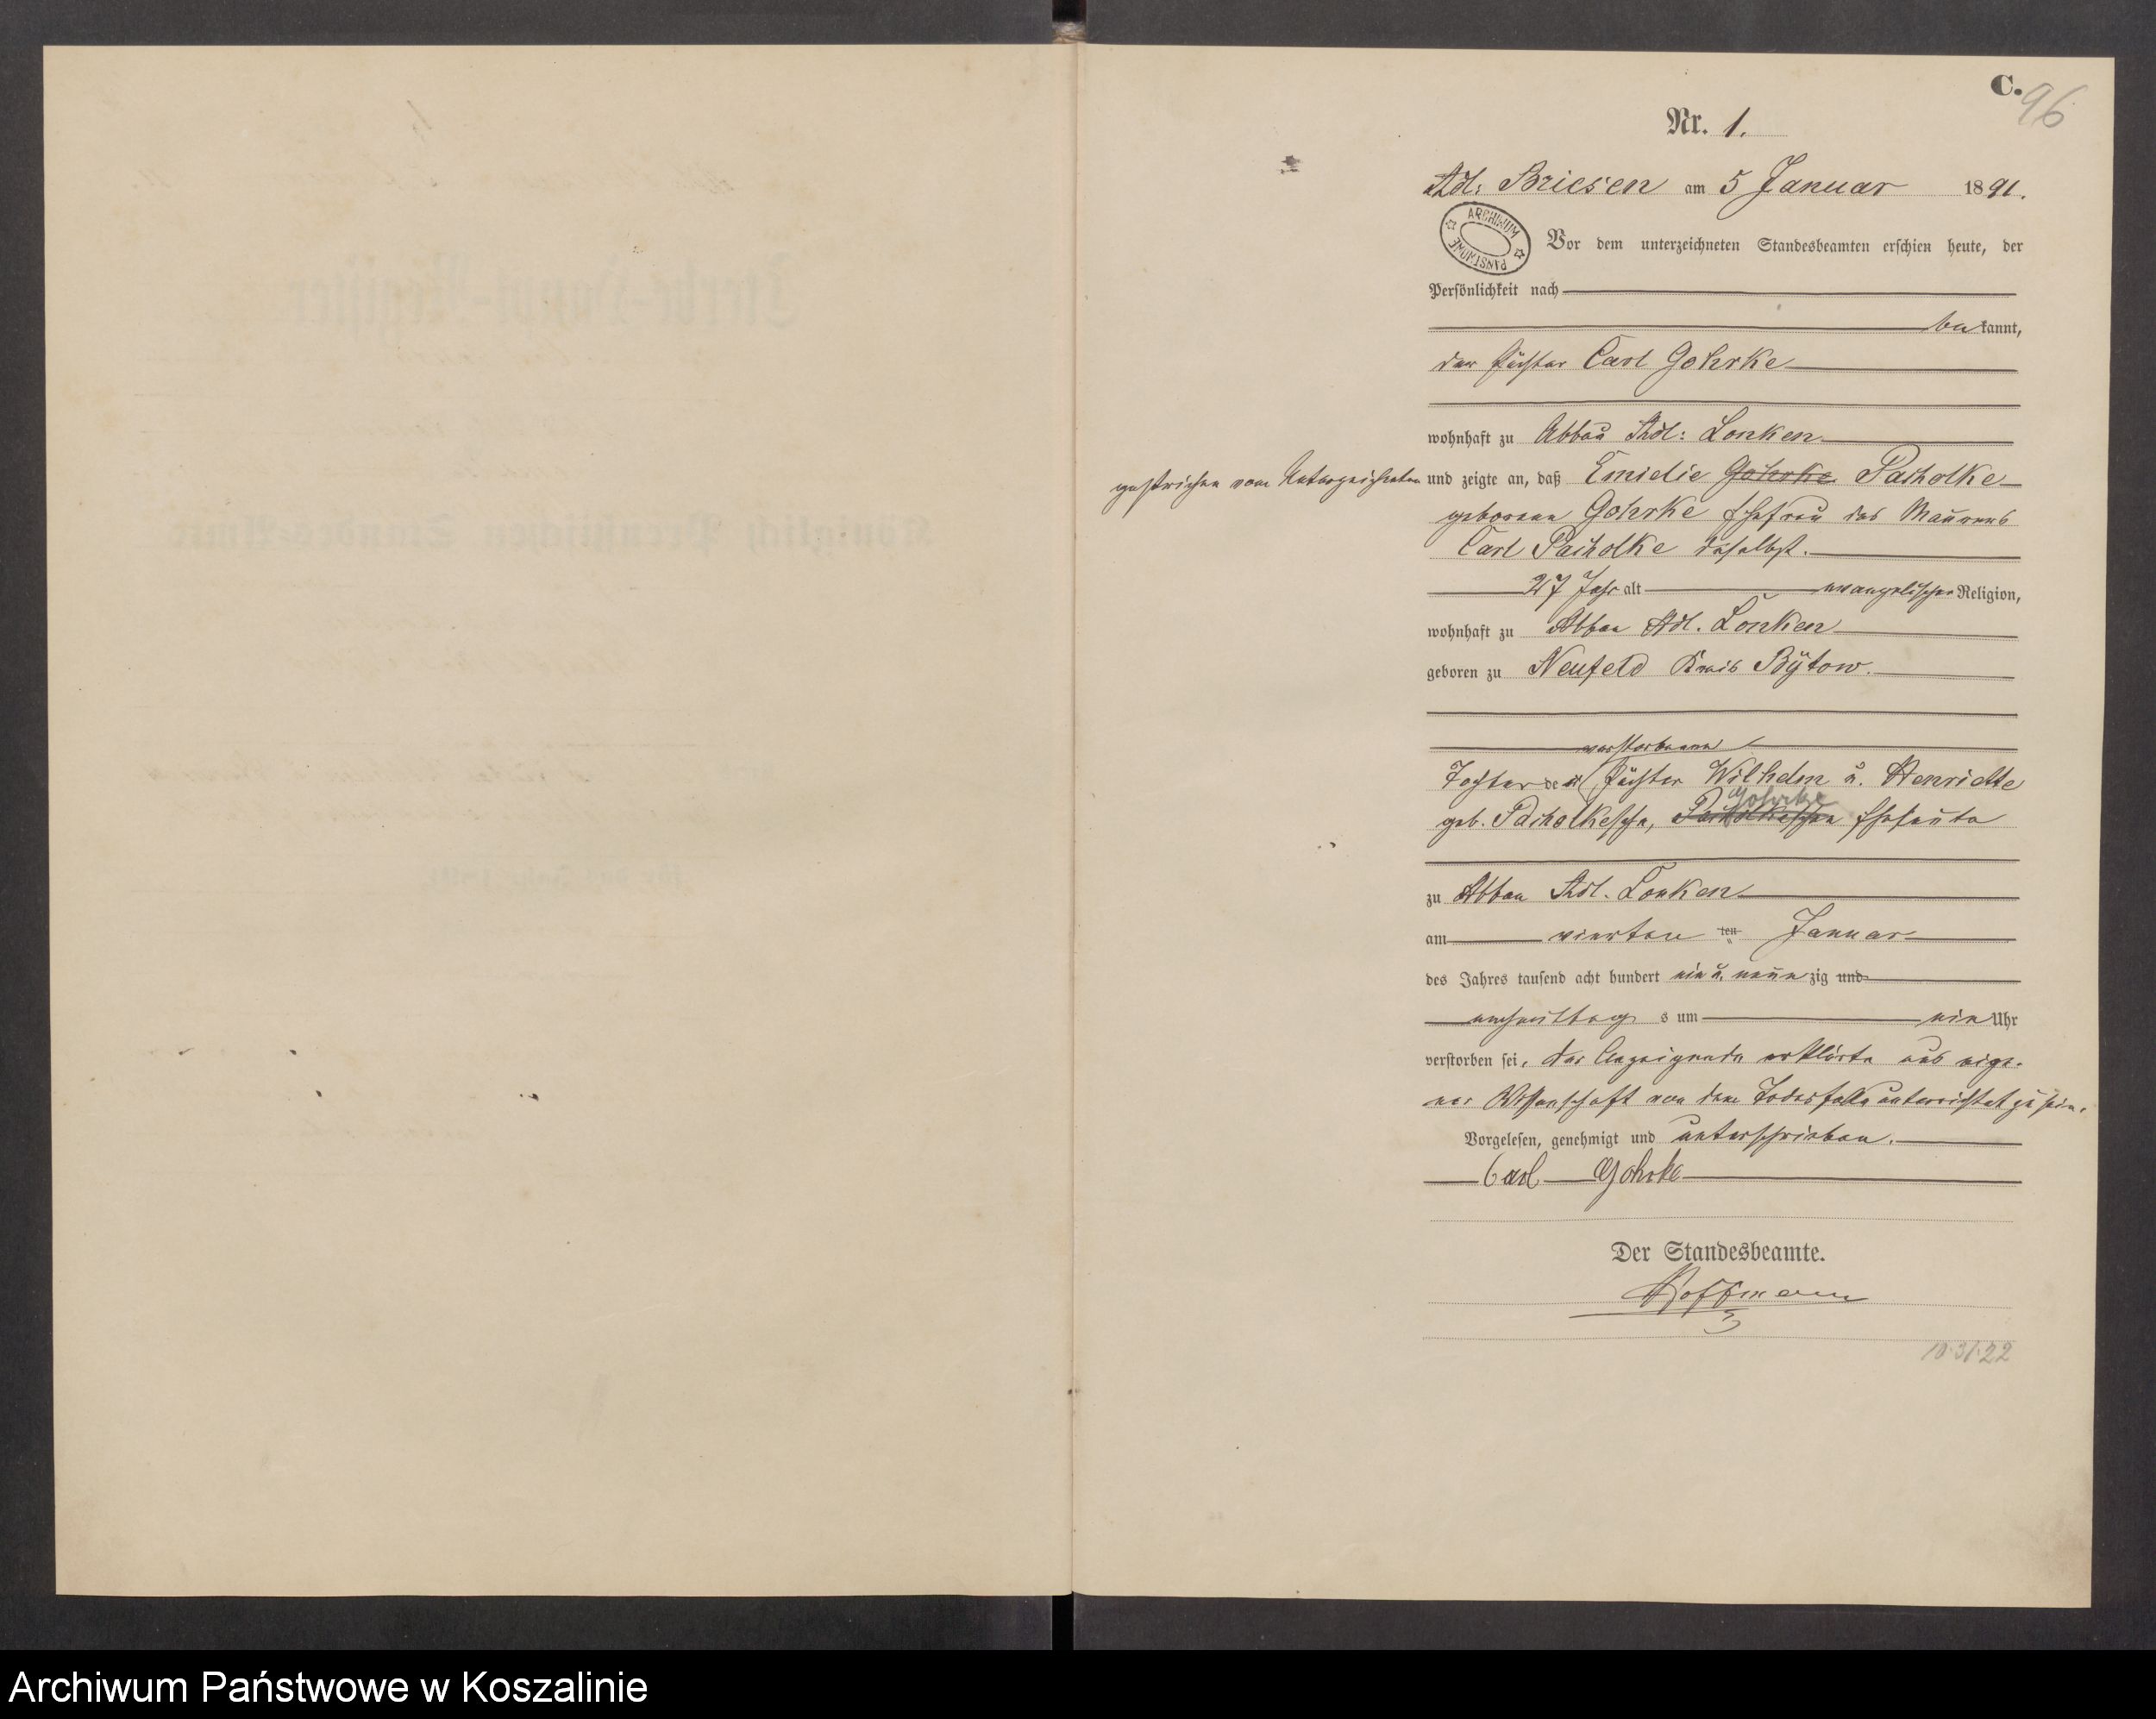 C.
96
Nr. 1.
Adl: Briesen am 5 Januar 1891.
ARCHIWUM PAŃSTWOWE
Vor dem unterzeichneten Standesbeamten erschien heute, der
Persönlichkeit nach
bekannt,
der Pächter Carl Gohrke
wohnhaft zu Abbau Adl: Lonken
gestrichen vom Unterzeichneten
und zeigte an, daß Emielie Gohrke Pacholke
geborene Gohrke Ehefrau des Maurers
Carl Pacholke daselbst.
27 Jahr alt evangelischer Religion,
wohnhaft zu Abbau Adl. Lonken
geboren zu Neufeld Kreis Bütow.
verstorbenen
Tochter der Pächter Wilhelm u. Henriette
Gohrke
geb. Pacholkesche, Pacholkeschen Eheleute
zu Abbau Adl. Lonken
am vierten ten Januar
des Jahres tausend acht hundert ein u. neunzig und
nachmittags um ein Uhr
verstorben sei, der Anzeigende erklärte aus eige-
ner Wissenschaft von dem Todesfalle unterrichtet zu sein.
Vorgelesen, genehmigt und unterschrieben.
Carl Gohrke
Der Standesbeamte.
Hoffmann
10.31.22
Archiwum Państwowe w Koszalinie